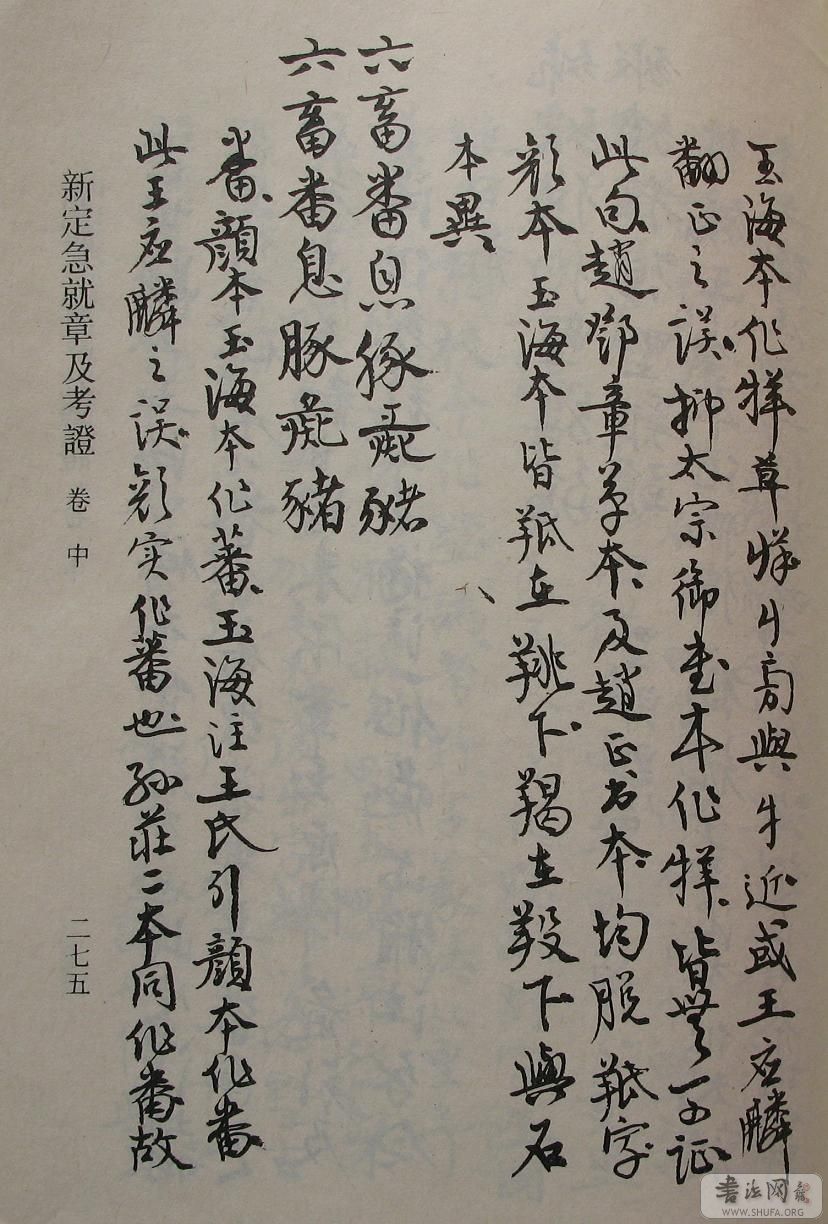 玉海本作牂草牂牛旁與牛近或王应麟
翻正之误抑太宗御書本作牂皆無可证
此句趙鄧章草本及趙正书本均脱羝字
颜本玉海本皆羝在羝下羯在羖下與石
本異
六畜番息豚豝豬
六畜番息豚豝豬
番顏本玉海本作蕃玉海注王氏引顏本作番
此王应麟之误颜实作蕃也孙莊二本同作番故
新定急就章及考證 卷中
二七五
書法网
WWW.SHUFA.ORG